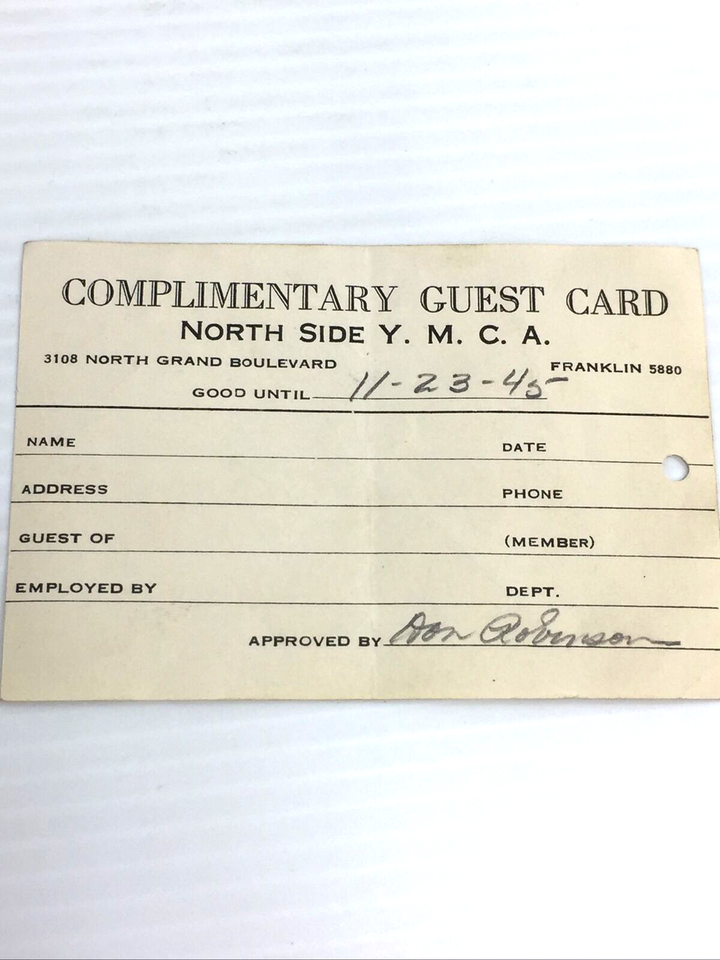 COMPLIMENTARY GUEST CARD
NORTH SIDE Y. M. C. A.
3108 NORTH GRAND BOULEVARD FRANKLIN 5880
GOOD UNTIL 11-23-45
NAME DATE
ADDRESS PHONE
GUEST OF (MEMBER)
EMPLOYED BY DEPT.
APPROVED BY Don Robinson